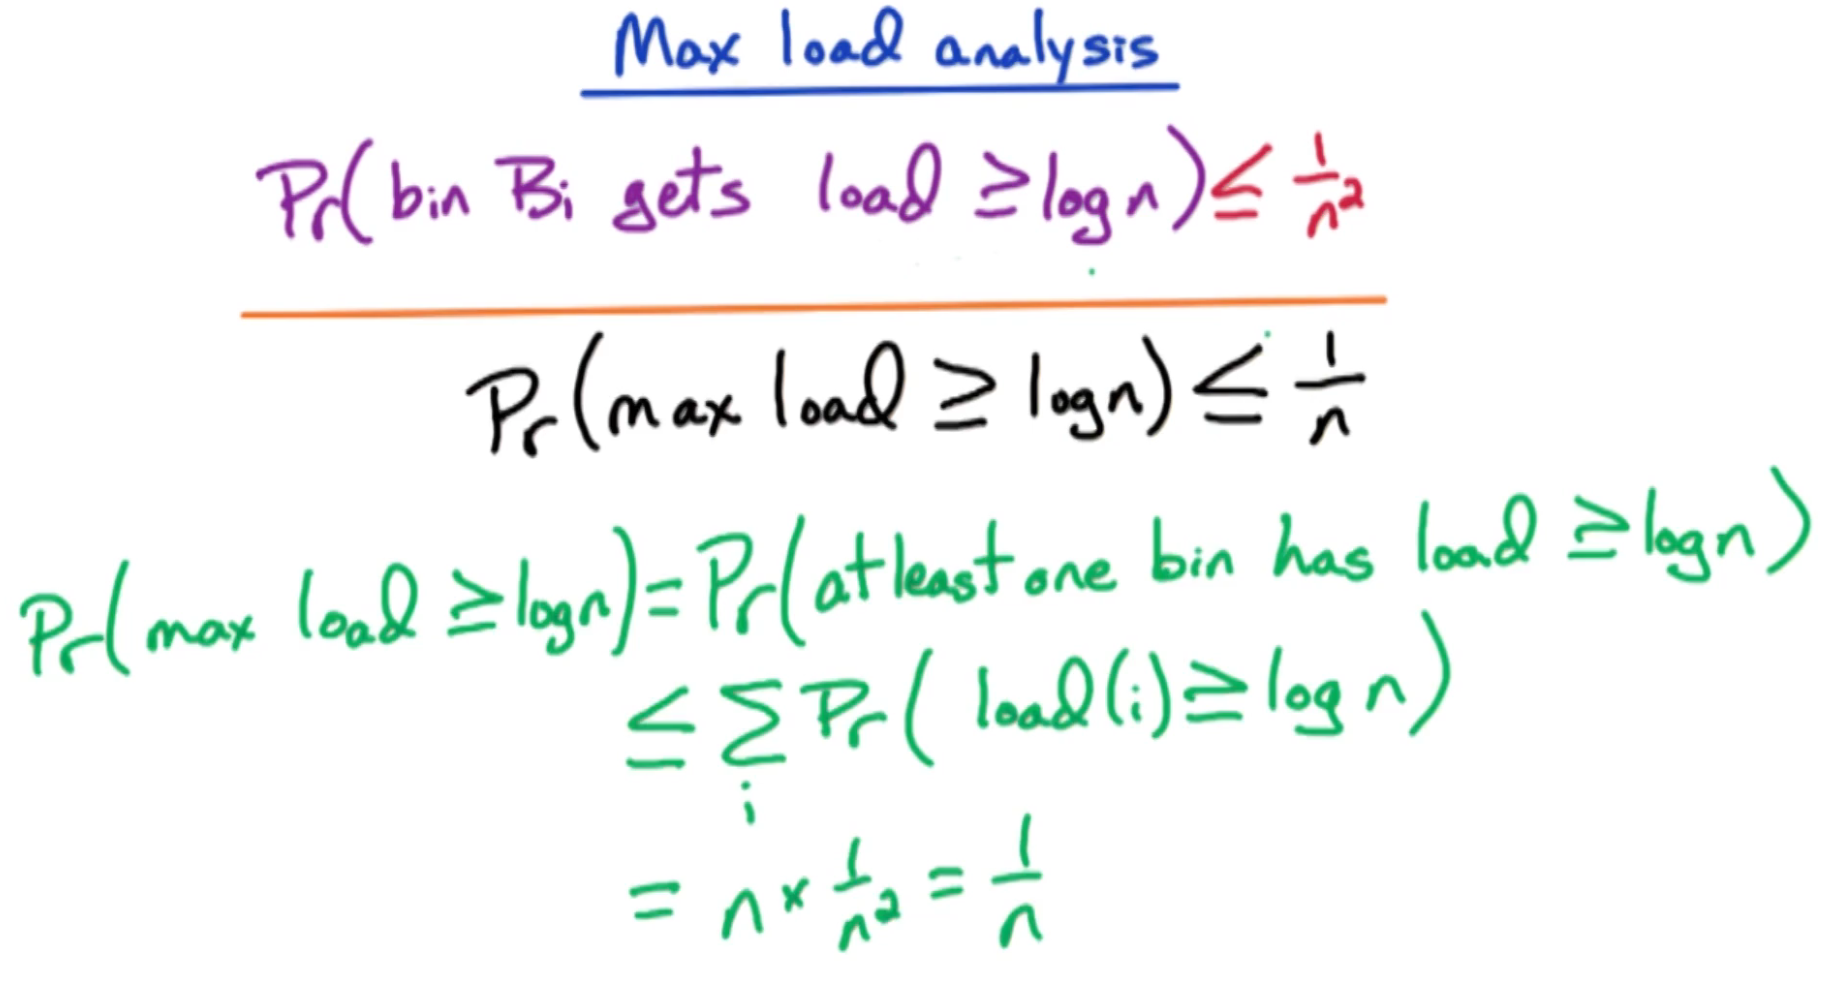 Max load analysis
Pr(bin Bi gets load ≥ log n) ≤ 1/n²
Pr(max load ≥ log n) ≤ 1/n
Pr(max load ≥ log n) = Pr(atleast one bin has load ≥ log n)
≤ ∑i Pr(load(i) ≥ log n)
= n × 1/n² = 1/n